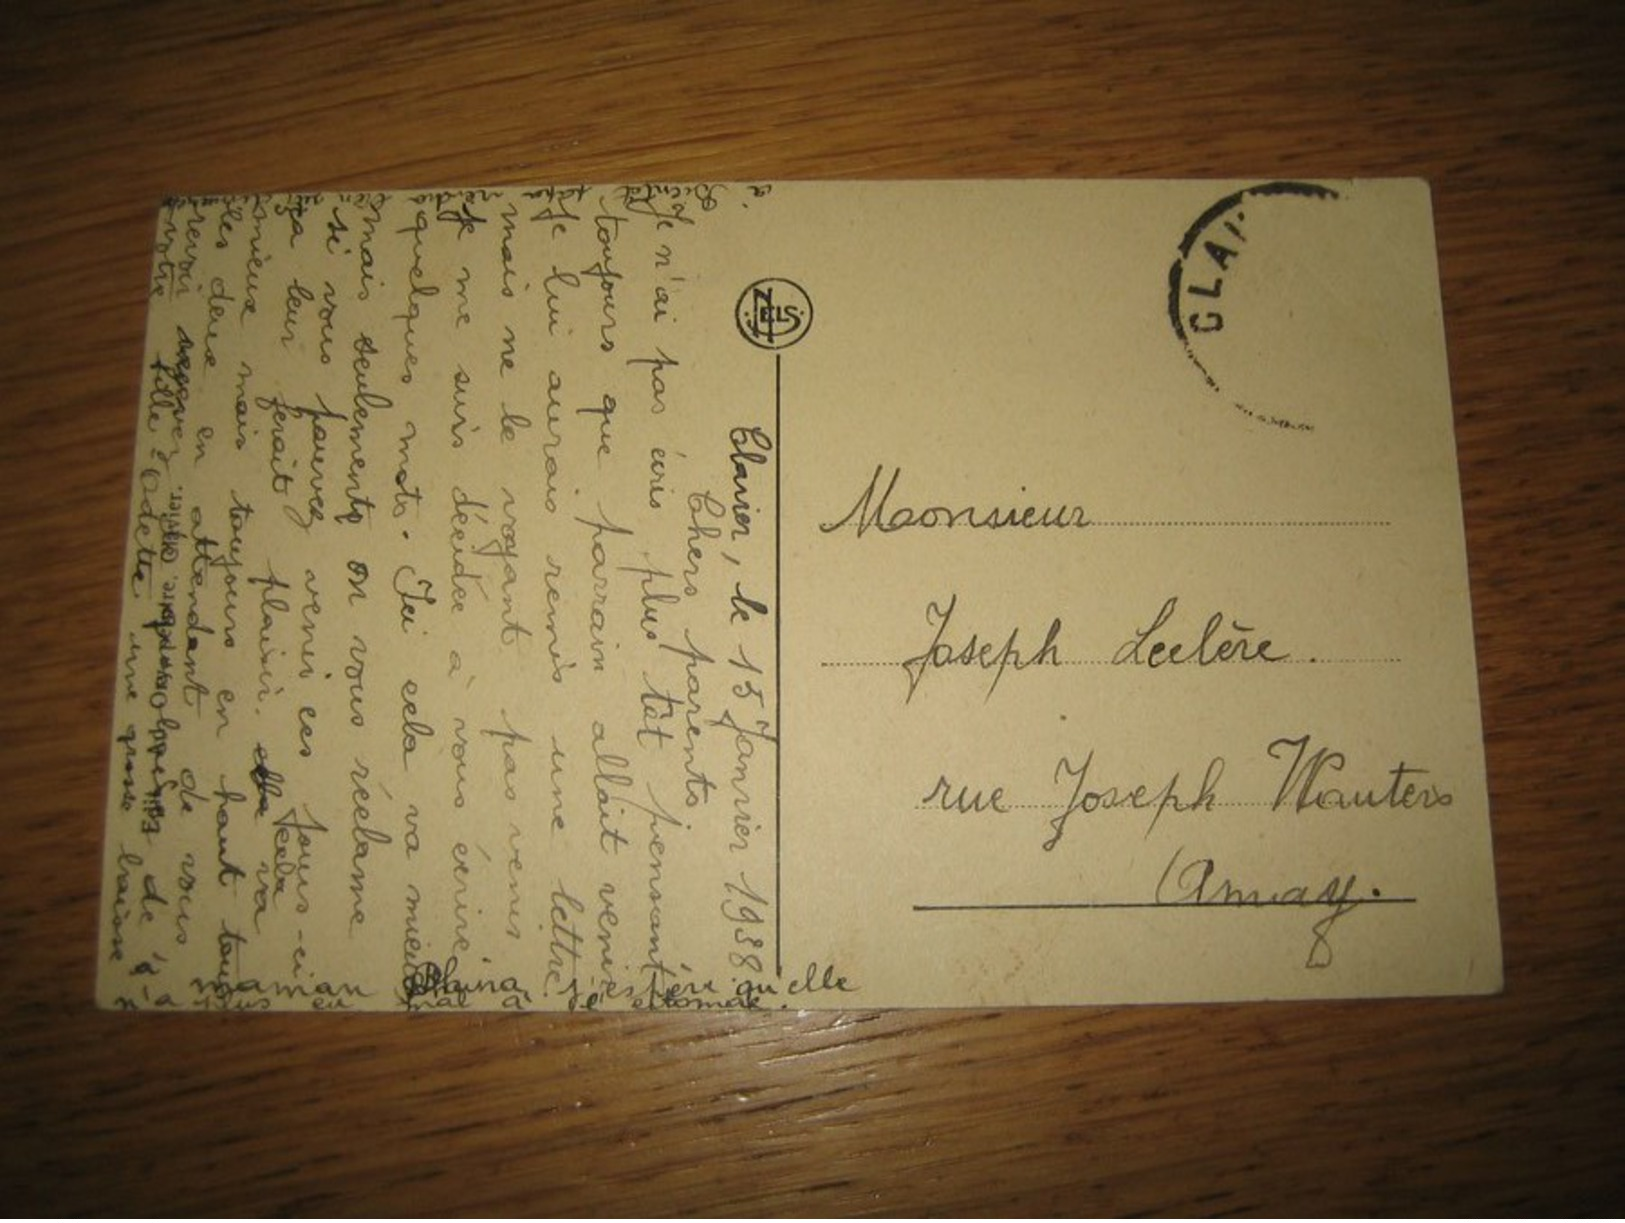 Clavier, le 15 Janvier 1938.
Chers parents,
Je n'ai pas écris plus tôt pensant
toujours que parrain allait venir
Je lui aurais remis une lettre
mais ne le voyant pas venir
Je me suis décidée à vous écrire
quelques mots. Ici cela va mieux
mais seulement on vous réclame
si vous pouvez venir ces jours-ci
ça leur ferait plaisir. cela va
mieux mais toujours en haut tous
les deux en attendant de vous
revoir recevez de
votre fille Odette une grosse baiser
maman j'espère qu'elle
à
Bientôt
NELS
CLAV
Monsieur
Joseph Leclère.
rue Joseph Wauters
Amay.